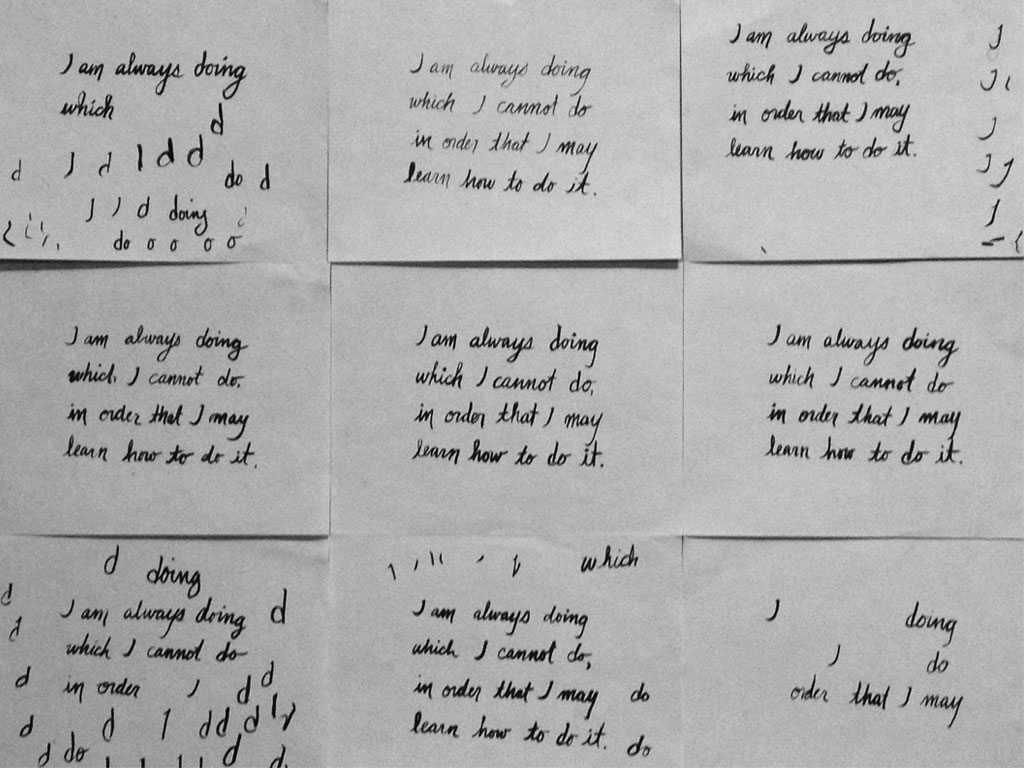 I am always doing
which
d
d J d l d d
do d
J J d doing
do o o o o
I am always doing
which I cannot do
in order that I may
learn how to do it.
I am always doing
which I cannot do,
in order that I may
learn how to do it.
I am always doing
which, I cannot do,
in order that I may
learn how to do it.
I am always doing
which I cannot do,
in order that I may
learn how to do it.
I am always doing
which I cannot do
in order that I may
learn how to do it.
d doing
d
I am always doing d
d
which I cannot do
d in order J d d
d d l d d d
d do d d
which
I am always doing
which I cannot do,
in order that I may do
learn how to do it. do
J doing
J do
order that I may